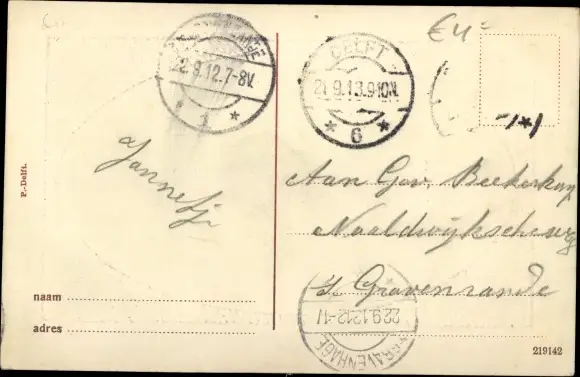 €4=
DELFT
21.9.13.9-10N.
* 6 *
22.9.12.7-8V.
1 *
Jannetje
Aan Gov. Beekerkamp
Naaldwijkscheweg
s Gravenzande
22.9.1312-1V
'S GRAVENHAGE
P.-Delft.
naam
adres
219142